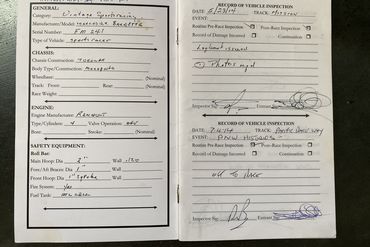 GENERAL:
Category: Vintage Sportsracing
Manufacturer/Model:
Serial Number: FM 261
Type of Vehicle: Sportsracer
CHASSIS:
Chassis Construction: Tubular
Body Type/Construction:
Wheelbase: (Nominal)
Track: Front Rear: (Nominal)
Race Weight:
ENGINE:
Engine Manufacturer: Renault
Type/Cylinders: 4 Valve Operation: OHV
Bore: Stroke: (Nominal)
SAFETY EQUIPMENT:
Roll Bar:
Main Hoop: Dia 2" Wall .120
Fore/Aft Braces: Dia 1" Wall
Front Hoop: Dia 1" Wall
Fire System: Yes
Fuel Tank:
RECORD OF VEHICLE INSPECTION
DATE: 5/23/14 TRACK:
EVENT:
Routine Pre-Race Inspection Post-Race Inspection
Record of Damage Incurred Continuation
Logbook issued
Photos
Inspector Sig Entrant
RECORD OF VEHICLE INSPECTION
DATE: 7.4.14 TRACK: Pacific Raceway
EVENT: PNW Historics
Routine Pre-Race Inspection Post-Race Inspection
Record of Damage Incurred Continuation
OK to Race
Inspector Sig: Entrant